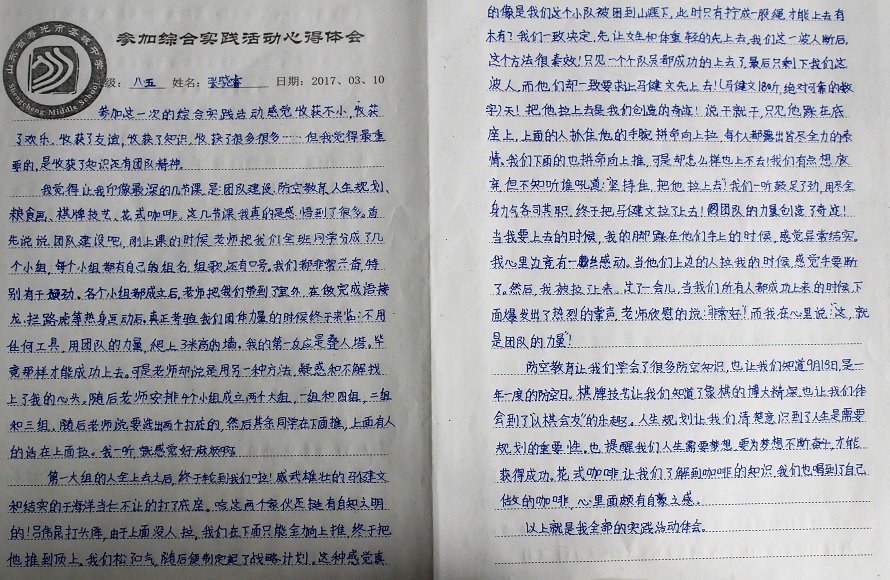 山东省寿光市圣城中学
Shengcheng Middle School
参加综合实践活动心得体会
级: 八五 姓名: 日期: 2017、03、10
参加这一次的综合实践活动感觉收获不小,收获
了欢乐、收获了友谊,收获了知识,收获了很多很多……但我觉得最重
要的,是收获了知识还有团队精神。
我觉得让我印像最深的几节课,是:团队建设、防空教育、人生规划、
粮食画、棋牌技艺、花式咖啡。这几节课我真的是感悟到了很多。首
先说说团队建设吧,刚上课的时候老师把我们全班同学分成了几
个小组,每个小组都有自己的组名、组歌,还有口号。我们都非常兴奋,特
别有干劲。各个小组都成立后,老师把我们带到了室外,在做完成语接
龙、拦路虎等热身活动后,真正考验我们团体力量的时候终于来临:不用
任何工具,用团队的力量,爬上3米高的墙。我的第一反应是叠人塔。毕
竟那样才能成功上去。可是老师却说是用另一种方法,疑惑和不解找
上了我的心头。随后老师安排4个小组成立两个大组,一组和四组,二组
和三组。随后老师说要选出两个打底的,然后其余同学在下面推,上面有人
的话在上面拉。我一听,就感觉好麻烦啊。
第一大组的人全上去之后,终于轮到我们啦!威武雄壮的马健文
和结实的于海洋当仁不让的打了底座。哈这两个家伙还挺有自知之明
的!吕伟昆打头阵,由于上面没人拉,我们在下面只能全力向上推,终于把
他推到顶上。我们松和气,随后便制定起了战略计划。这种感觉真
的像是我们这个小队被困到山崖下,此时只有拧成一股绳才能上去有
木有?我们一致决定,先让女生和体重轻的先上去,我们这一波人断后。
这个方法很奏效!只见一个个队员都成功的上去了,最后只剩下我们这
波人,而他们却一致要求让马健文先上去!(马健文180斤,绝对可靠的数
字)天!把他拉上去是我们创造的奇迹!说干就干,只见他踩在底
座上,上面的人抓住他的手腕拼命向上拉,每个人都露出皆尽全力的表
情。我们下面的也拼命向上推,可是却怎么样也上不去!我们有点想放
弃,但不知听谁吼道:坚持住,把他拉上去!我们一听鼓足了劲,用尽全
身力气各司其职,终于把马健文拉了上去!团队的力量创造了奇迹!
当我要上去的时候,我的脚踩在他们手上的时候,感觉异常结实。
我心里边竟有一丝感动。当他们上边的人拉我的时候,感觉手要断
了。然后,我被拉了上来,过了一会儿,当我们所有人都成功上来的时候,下
面爆发出了热烈的掌声,老师欣慰的说:"非常好!"而我在心里说:"这,就
是团队的力量!"
防空教育让我们学会了很多防空知识,也让我们知道9月18日,是一
年一度的防空日。棋牌技艺让我们知道了象棋的博大精深,也让我们体
会到了"以棋会友"的乐趣。人生规划让我们清楚意识到了人生是需要
规划的重要性。也提醒我们人生需要梦想,要为梦想不断奋斗,才能
获得成功。花式咖啡让我们了解到咖啡的知识,我们也喝到了自己
做的咖啡,心里面颇有自豪之感。
以上就是我全部的实践活动体会。